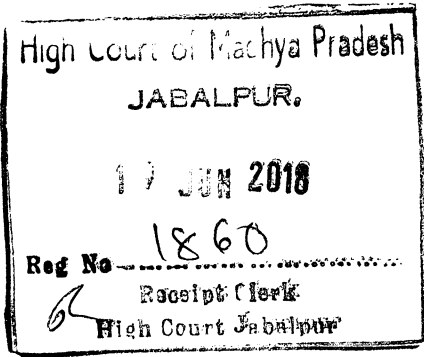 High Court of Madhya Pradesh
JABALPUR.
JUN 2018
Reg No 1860
Receipt Clerk
High Court Jabalpur